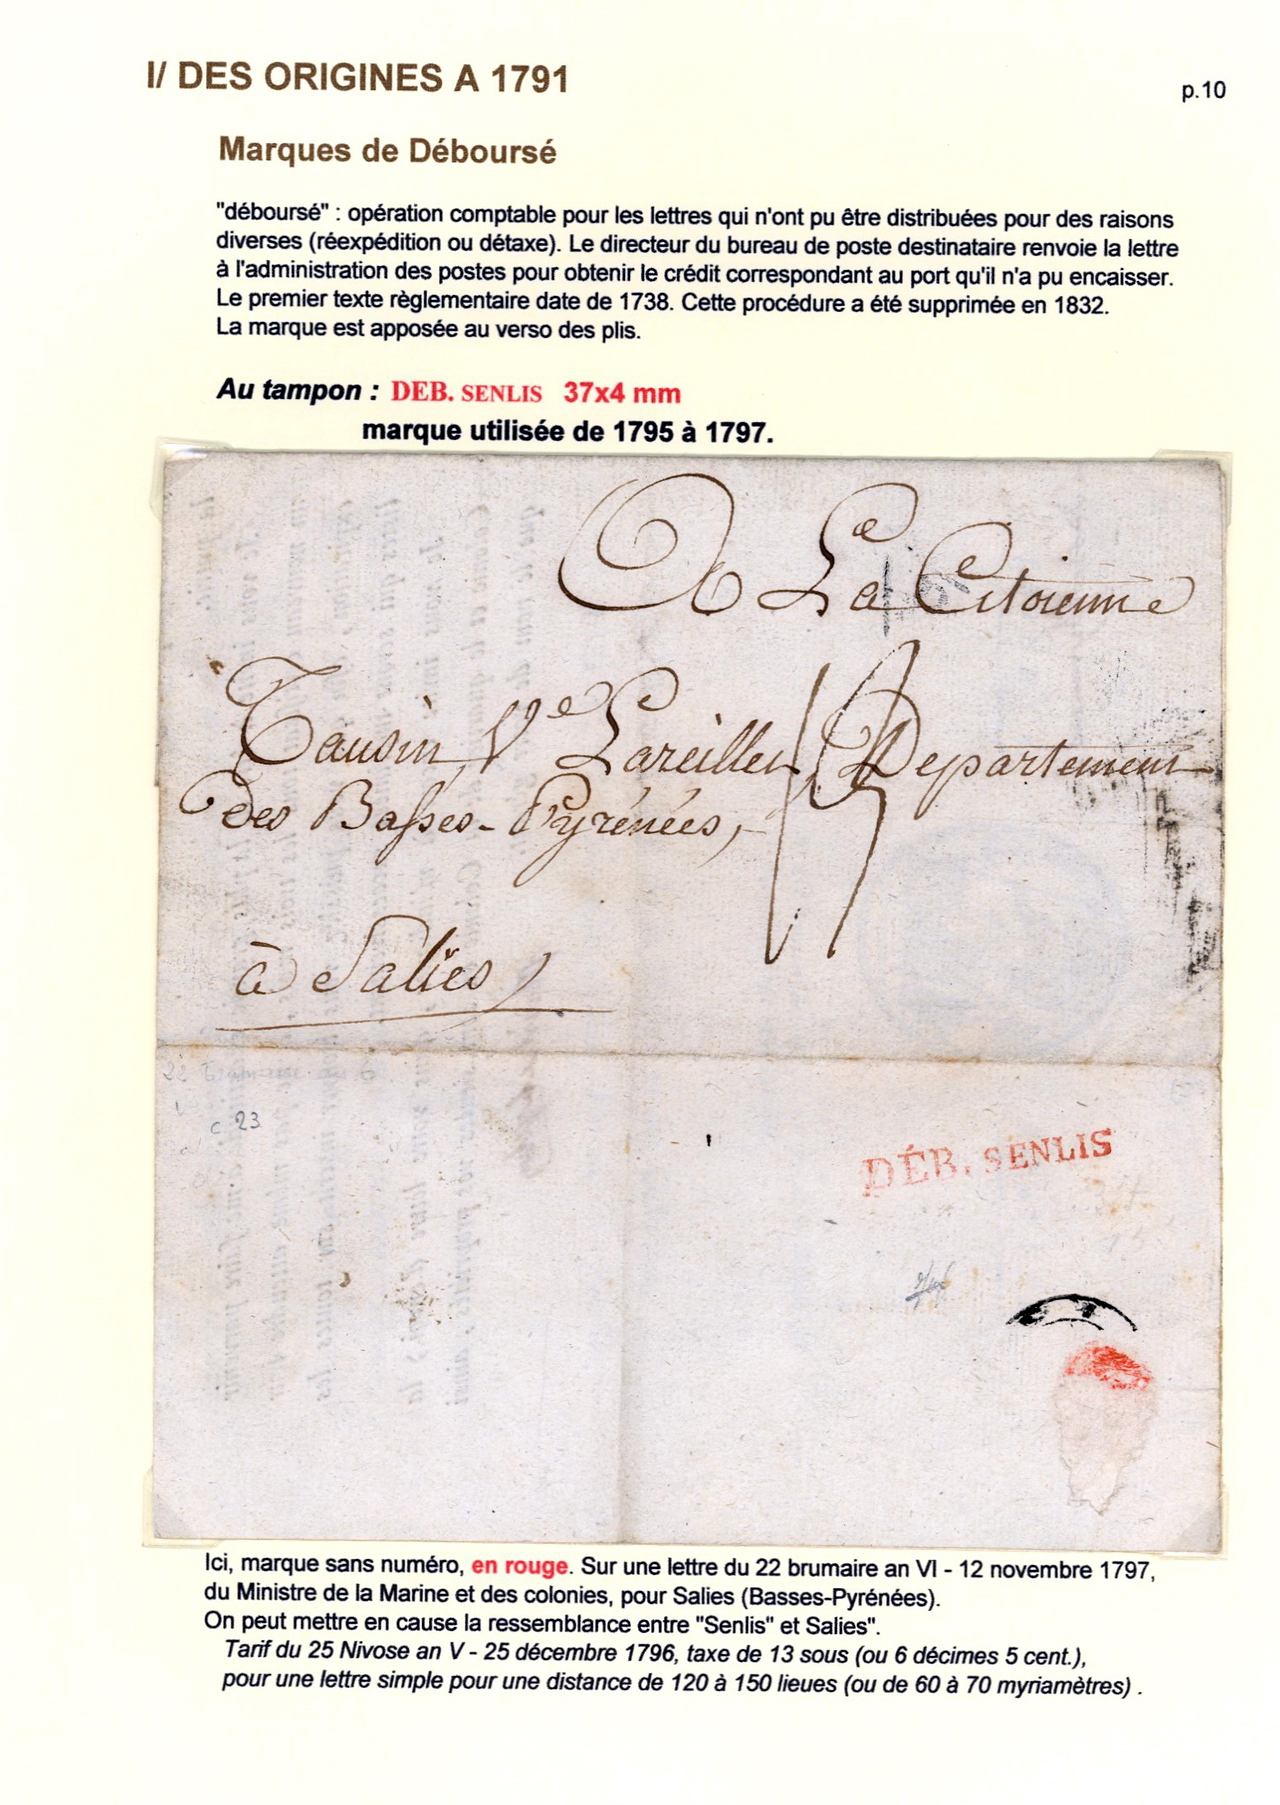 I/ DES ORIGINES A 1791
p.10
Marques de Déboursé
"déboursé" : opération comptable pour les lettres qui n'ont pu être distribuées pour des raisons
diverses (réexpédition ou détaxe). Le directeur du bureau de poste destinataire renvoie la lettre
à l'administration des postes pour obtenir le crédit correspondant au port qu'il n'a pu encaisser.
Le premier texte règlementaire date de 1738. Cette procédure a été supprimée en 1832.
La marque est apposée au verso des plis.
Au tampon : DEB. SENLIS 37x4 mm
marque utilisée de 1795 à 1797.
A La Citoienne
Tausin Ve Lareillet, Departement
des Basses-Pyrénées,
à Salies
c 23
DÉB. SENLIS
Ici, marque sans numéro, en rouge. Sur une lettre du 22 brumaire an VI - 12 novembre 1797,
du Ministre de la Marine et des colonies, pour Salies (Basses-Pyrénées).
On peut mettre en cause la ressemblance entre "Senlis" et Salies".
Tarif du 25 Nivose an V - 25 décembre 1796, taxe de 13 sous (ou 6 décimes 5 cent.),
pour une lettre simple pour une distance de 120 à 150 lieues (ou de 60 à 70 myriamètres) .